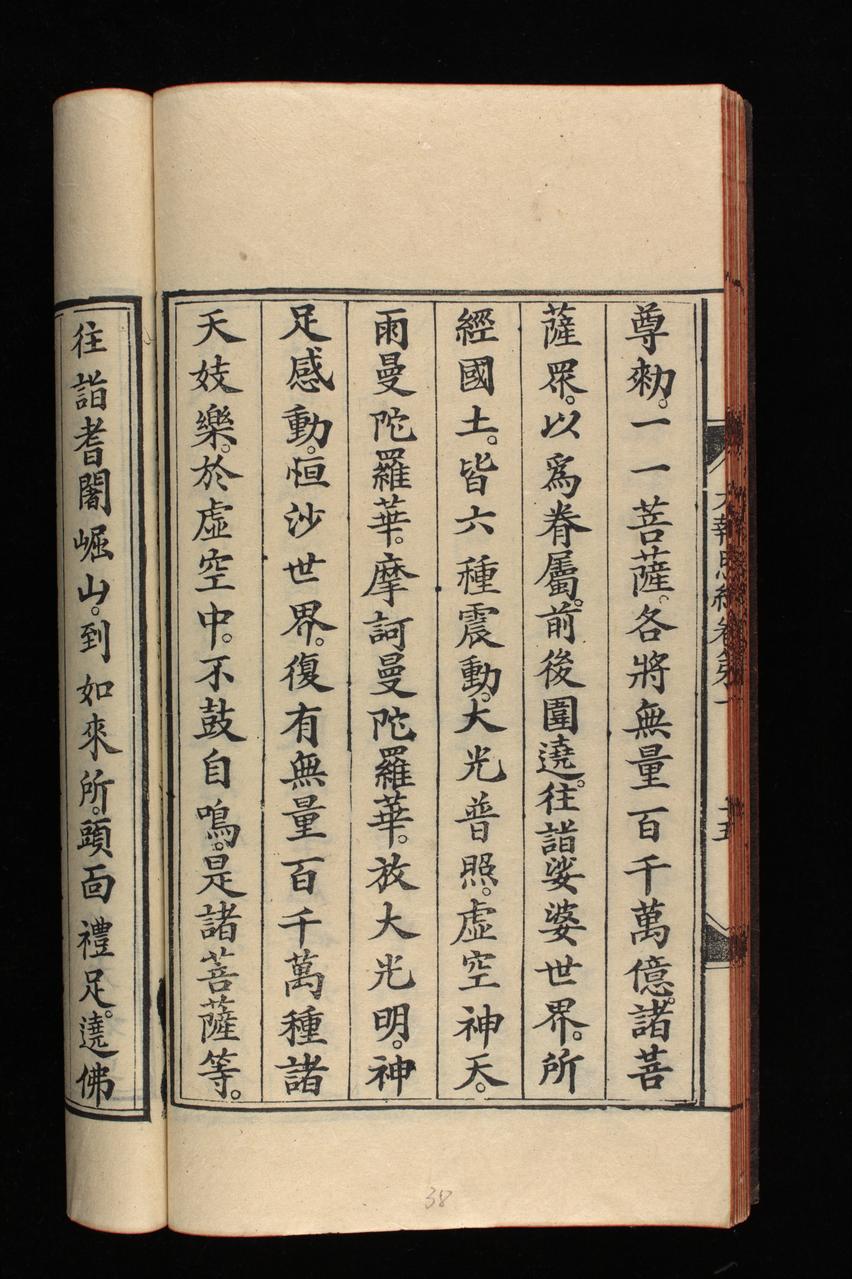 尊勑。一一菩薩。各將無量百千萬億。諸菩
薩眾。以爲眷屬。前後圍遶。往詣娑婆世界。所
經國土。皆六種震動。大光普照。虛空神天。
雨曼陀羅華。摩訶曼陀羅華。放大光明。神
足感動。恒沙世界。復有無量百千萬種諸
天妓樂。於虛空中。不鼓自鳴。是諸菩薩等。
往詣耆闍崛山。到如來所。頭面禮足。遶佛
大報恩經卷第一
38